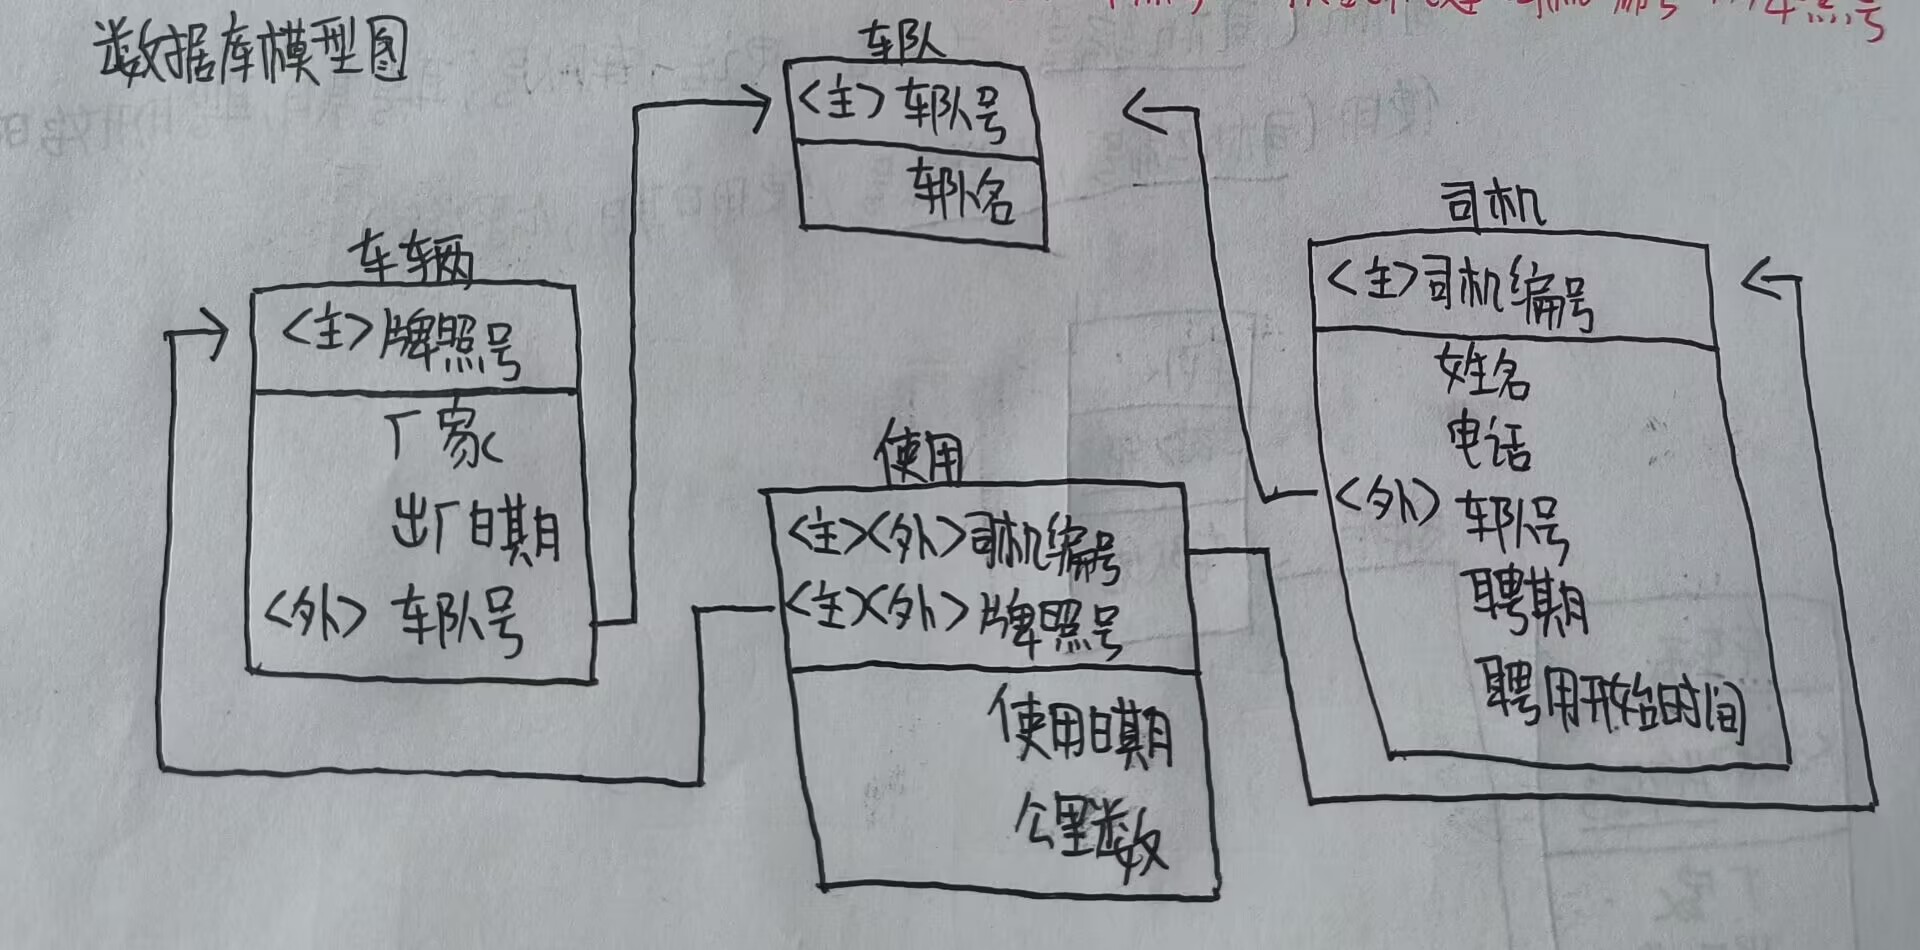 数据库模型图
车队
<主> 车队号
车队名
车辆
<主> 牌照号
厂家
出厂日期
<外> 车队号
使用
<主><外>司机编号
<主><外> 牌照号
使用日期
公里数
司机
<主>司机编号
姓名
电话
<外> 车队号
聘期
聘用开始时间